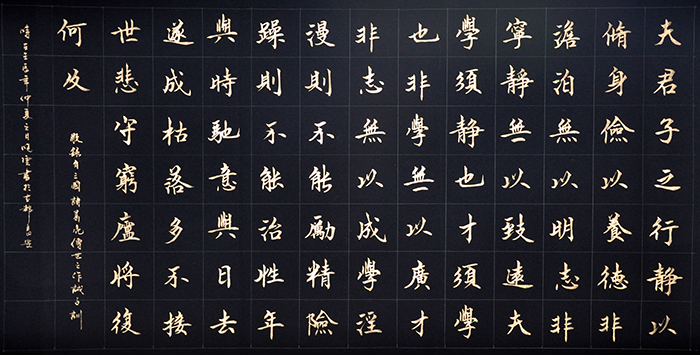 夫君子之行靜以
脩身儉以養德非
澹泊無以明志非
寧靜無以致遠夫
學須靜也才須學
也非學無以廣才
非志無以成學淫
漫則不能勵精險
躁則不能治性年
與時馳意與日去
遂成枯落多不接
世悲守窮廬將復
何及
敬錄自三國諸葛亮傳世之作誡子訓
年仲夏之月書於古都